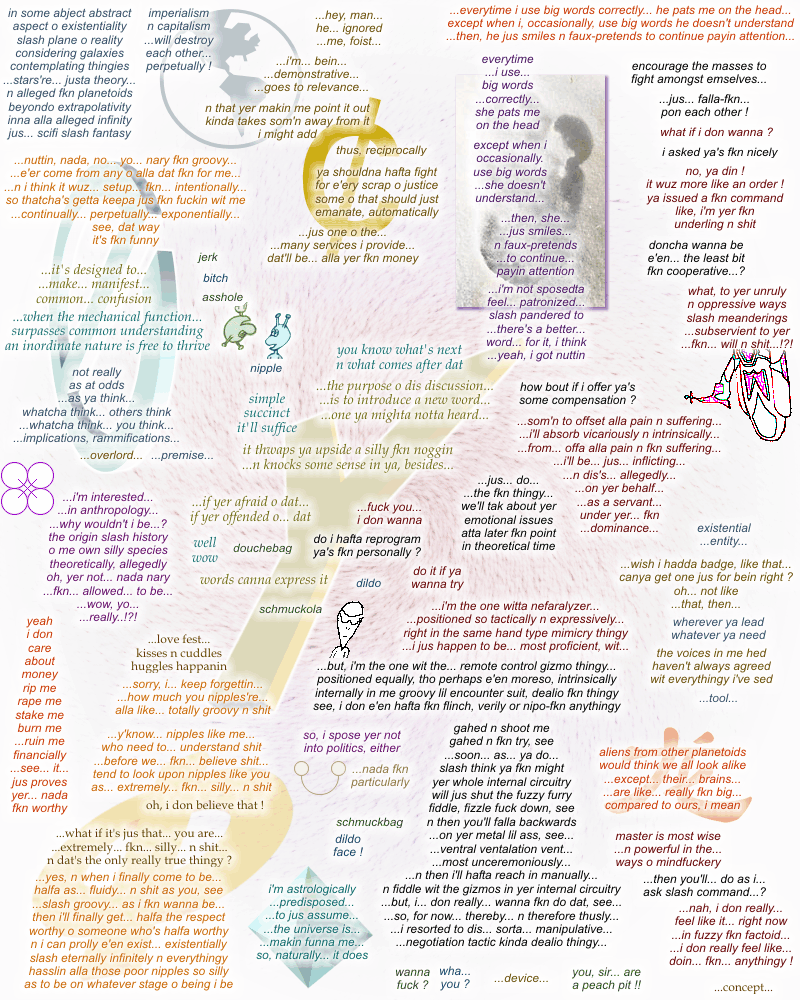 in some abject abstract
aspect o existentiality
slash plane o reality
considering galaxies
contemplating thingies
...stars're... justa theory...
n alleged fkn planetoids
beyondo extrapolativity
inna alla alleged infinity
jus... scifi slash fantasy
imperialism
n capitalism
...will destroy
each other...
perpetually !
...hey, man...
he... ignored
...me, foist...
...i'm... bein...
...demonstrative...
...goes to relevance...
n that yer makin me point it out
kinda takes som'n away from it
i might add
thus, reciprocally
ya shouldna hafta fight
for e'ery scrap o justice
some o that should just
emanate, automatically
...jus one o the...
...many services i provide...
dat'll be... alla yer fkn money
...everytime i use big words correctly... he pats me on the head...
except when i, occasionally, use big words he doesn't understand
...then, he jus smiles n faux-pretends to continue payin attention...
everytime
...i use...
big words
...correctly...
she pats me
on the head
except when i
occasionally.
use big words
...she doesn't
understand...
...then, she...
...jus smiles...
n faux-pretends
...to continue...
payin attention
...i'm not sposedta
feel... patronized...
slash pandered to
...there's a better...
word... for it, i think
...yeah, i got nuttin
encourage the masses to
fight amongst emselves...
...jus... falla-fkn...
pon each other !
what if i don wanna ?
i asked ya's fkn nicely
no, ya din !
it wuz more like an order !
ya issued a fkn command
like, i'm yer fkn
underling n shit
doncha wanna be
e'en... the least bit
fkn cooperative...?
what, to yer unruly
n oppressive ways
slash meanderings
...subservient to yer
...fkn... will n shit...!?!
...nuttin, nada, no... yo... nary fkn groovy...
...e'er come from any o alla dat fkn for me...
...n i think it wuz... setup... fkn... intentionally...
so thatcha's getta keepa jus fkn fuckin wit me
...continually... perpetually... exponentially...
see, dat way
it's fkn funny
...it's designed to...
...make... manifest...
common... confusion
...when the mechanical function...
surpasses common understanding
an inordinate nature is free to thrive
jerk
bitch
asshole
nipple
not really
as at odds
...as ya think...
whatcha think... others think
...whatcha think... you think...
...implications, rammifications...
...overlord...
...premise...
simple
succinct
it'll suffice
you know what's next
n what comes after dat
...the purpose o dis discussion...
...is to introduce a new word...
...one ya mighta notta heard...
it thwaps ya upside a silly fkn noggin
...n knocks some sense in ya, besides...
how bout if i offer ya's
some compensation ?
...som'n to offset alla pain n suffering...
...i'll absorb vicariously n intrinsically...
...from... offa alla pain n fkn suffering...
...i'll be... jus... inflicting...
...n dis's... allegedly...
...on yer behalf...
...as a servant...
under yer... fkn
...dominance...
...i'm interested...
...in anthropology...
...why wouldn't i be...?
the origin slash history
o me own silly species
theoretically, allegedly
oh, yer not... nada nary
...fkn... allowed... to be...
...wow, yo...
...really..!?!
...if yer afraid o dat...
if yer offended o... dat
well
wow
douchebag
words canna express it
...fuck you...
i don wanna
do i hafta reprogram
ya's fkn personally ?
dildo
do it if ya
wanna try
...jus... do...
...the fkn thingy...
we'll tak about yer
emotional issues
atta later fkn point
in theoretical time
existential
...entity...
...wish i hadda badge, like that...
canya get one jus for bein right ?
oh... not like
...that, then...
wherever ya lead
whatever ya need
the voices in me hed
haven't always agreed
wit everythingy i've sed
...tool...
schmuckola
yeah
i don
care
about
money
rip me
rape me
stake me
burn me
...ruin me
financially
...see... it...
jus proves
yer... nada
fkn worthy
...love fest...
kisses n cuddles
huggles happanin
...sorry, i... keep forgettin...
...how much you nipples're...
alla like... totally groovy n shit
...i'm the one witta nefaralyzer...
...positioned so tactically n expressively...
right in the same hand type mimicry thingy
...i jus happen to be... most proficient, wit...
...but, i'm the one wit the... remote control gizmo thingy...
positioned equally, tho perhaps e'en moreso, intrinsically
internally in me groovy lil encounter suit, dealio fkn thingy
see, i don e'en hafta fkn flinch, verily or nipo-fkn anythingy
...y'know... nipples like me...
who need to... understand shit
...before we... fkn... believe shit...
tend to look upon nipples like you
as... extremely... fkn... silly... n shit
oh, i don believe that !
so, i spose yer not
into politics, either
...nada fkn
particularly
gahed n shoot me
gahed n fkn try, see
...soon... as... ya do...
slash think ya fkn might
yer whole internal circuitry
will jus shut the fuzzy furry
fiddle, fizzle fuck down, see
n then you'll falla backwards
...on yer metal lil ass, see...
...ventral ventalation vent...
...most unceremoniously...
...n then i'll hafta reach in manually...
n fiddle wit the gizmos in yer internal circuitry
...but, i... don really... wanna fkn do dat, see...
...so, for now... thereby... n therefore thusly...
...i resorted to dis... sorta... manipulative...
...negotiation tactic kinda dealio thingy...
aliens from other planetoids
would think we all look alike
...except... their... brains...
...are like... really fkn big...
compared to ours, i mean
schmuckbag
dildo
face !
master is most wise
...n powerful in the...
ways o mindfuckery
...then you'll... do as i...
ask slash command...?
...nah, i don really...
feel like it... right now
...in fuzzy fkn factoid...
...i don really feel like...
doin... fkn... anythingy !
...what if it's jus that... you are...
...extremely... fkn... silly... n shit...
n dat's the only really true thingy ?
...yes, n when i finally come to be...
halfa as... fluidy... n shit as you, see
...slash groovy... as i fkn wanna be...
then i'll finally get... halfa the respect
worthy o someone who's halfa worthy
n i can prolly e'en exist... existentially
slash eternally infinitely n everythingy
hasslin alla those poor nipples so silly
as to be on whatever stage o being i be
i'm astrologically
...predisposed...
...to jus assume...
...the universe is...
...makin funna me...
so, naturally... it does
wanna
fuck ?
wha...
you ?
...device...
you, sir... are
a peach pit !!
...concept...